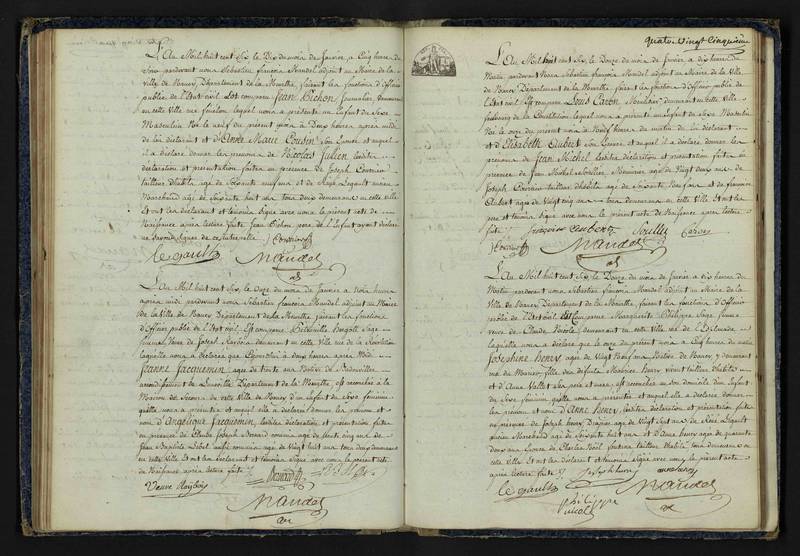 L'An Mil huit cent Six le Dix du mois de Janvier, a Cinq heures du
Soir pardevant nous Sébastien françois Mandel adjoint au Maire de la
Ville de Nancy, Département de la Meurthe, faisant les fonctions d'Officier
public de l'Etat civil Est comparu Jean Pichon journalier, demeurant
en cette Ville rue lequel nous a présenté un Enfant du Sexe
Masculin Né le neuf du présent mois à Deux heures après midi
de lui déclarant et d'Anne Marie Cousin son Epouse et auquel
il a déclaré donner les prénoms de Nicolas Julien lesdites
déclaration et présentation faites en présence de Joseph Courrier
tailleur d'habits agé de Soixante neuf ans et de Legault
Marchand agé de Soixante huit ans tous deux demeurans en cette ville
Et ont les déclarant et témoins Signé avec nous le présent acte de
Naissance après lecture faite, Jean Pichon pere de l'Enfant ayant déclaré
ne Savoir Signer de ce interpellé
Le gault Mandel
adj
L'An Mil huit cent Six, le Onze du mois de Janvier a trois heures
après midi pardevant nous Sébastien françois Mandel adjoint au Maire
de la Ville de Nancy Département de la Meurthe faisant les fonctions
d'Officier public de l'Etat civil Est comparue Sage
femme, Veuve de Joseph demeurant en cette Ville rue de la
laquelle nous a déclaré que aujourd'hui à deux heures après Midi
Jeanne Jacquemin agée de trente ans Native de
arrondissement de Lunéville Département de la Meurthe, Est accouchée à la
Maison de Secours de cette Ville de Nancy d'un Enfant du Sexe féminin
qu'elle nous a présenté et auquel elle a déclaré donner les prénom et
nom d'Angelique Jacquemin lesdites déclaration et présentation faites
en présence de Claude Joseph Bernard commis agé de trente cinq ans et de
Jean Baptiste commis agé de Vingt huit ans tous deux demeurans
en cette Ville Et ont les déclarant et témoins Signé avec nous le présent acte
de Naissance après lecture faite
Veuve Bernard
Mandel
adj
quatre Vingt Cinquième
L'An Mil huit cent Six le Douze du mois de Janvier a dix heures du
Matin pardevant Nous Sébastien françois Mandel adjoint au Maire de la Ville
de Nancy Département de la Meurthe faisant les fonctions d'Officier public de
l'Etat civil Est comparu Louis Caron demeurant en cette Ville
faubourg de la Constitution lequel nous a présenté un Enfant du Sexe Masculin
Né le onze du présent mois à Neuf heures du matin de lui déclarant
et d'Elisabeth Aubert son Epouse et auquel il a déclaré donner les
prénoms de Jean Michel lesdites déclaration et présentation faites en
présence de Jean Michel Menuisier agé de Vingt deux ans de
Joseph Courrier tailleur d'habits agé de Soixante neuf ans et de françoise
Aubert agée de Vingt cinq ans tous demeurans en cette Ville Et ont les
pere et témoins Signé avec nous le présent acte de Naissance après lecture
faite françoise aubert Caron
Mandel
adj
L'An Mil huit cent Six le Douze du mois de Janvier a dix heures du
Matin pardevant nous Sébastien françois Mandel adjoint au Maire de la
Ville de Nancy Département de la Meurthe, faisant les fonctions d'Officier
public de l'Etat civil Est Comparue Marguerite Philippe Sage femme
veuve de Claude Nicole demeurant en cette Ville rue de
laquelle nous a déclaré que le onze du présent mois à Cinq heures du matin
Josephine henry agée de Vingt Neuf ans, Native de Nancy y demeurant
rue du fille du défunt Maurice henry vivant tailleur d'habits
et d'Anne ses pere et mere, Est accouchée en son domicile d'un Enfant
du Sexe féminin qu'elle nous a présenté et auquel elle a déclaré donner
les prénom et nom d'Anne Henry lesdites déclaration et présentation faites
en présence de Joseph henry agé de Vingt huit ans de Legault
ancien Marchand agé de Soixante huit ans et d'Anne henry agée de quarante
deux ans Epouse de Charles tailleur d'habits tous demeurans en
cette Ville Et ont les déclarant et témoins Signé avec nous le présent acte
après lecture faite Joseph henry anne henry
Le gault Philippe Mandel
Nicole adj